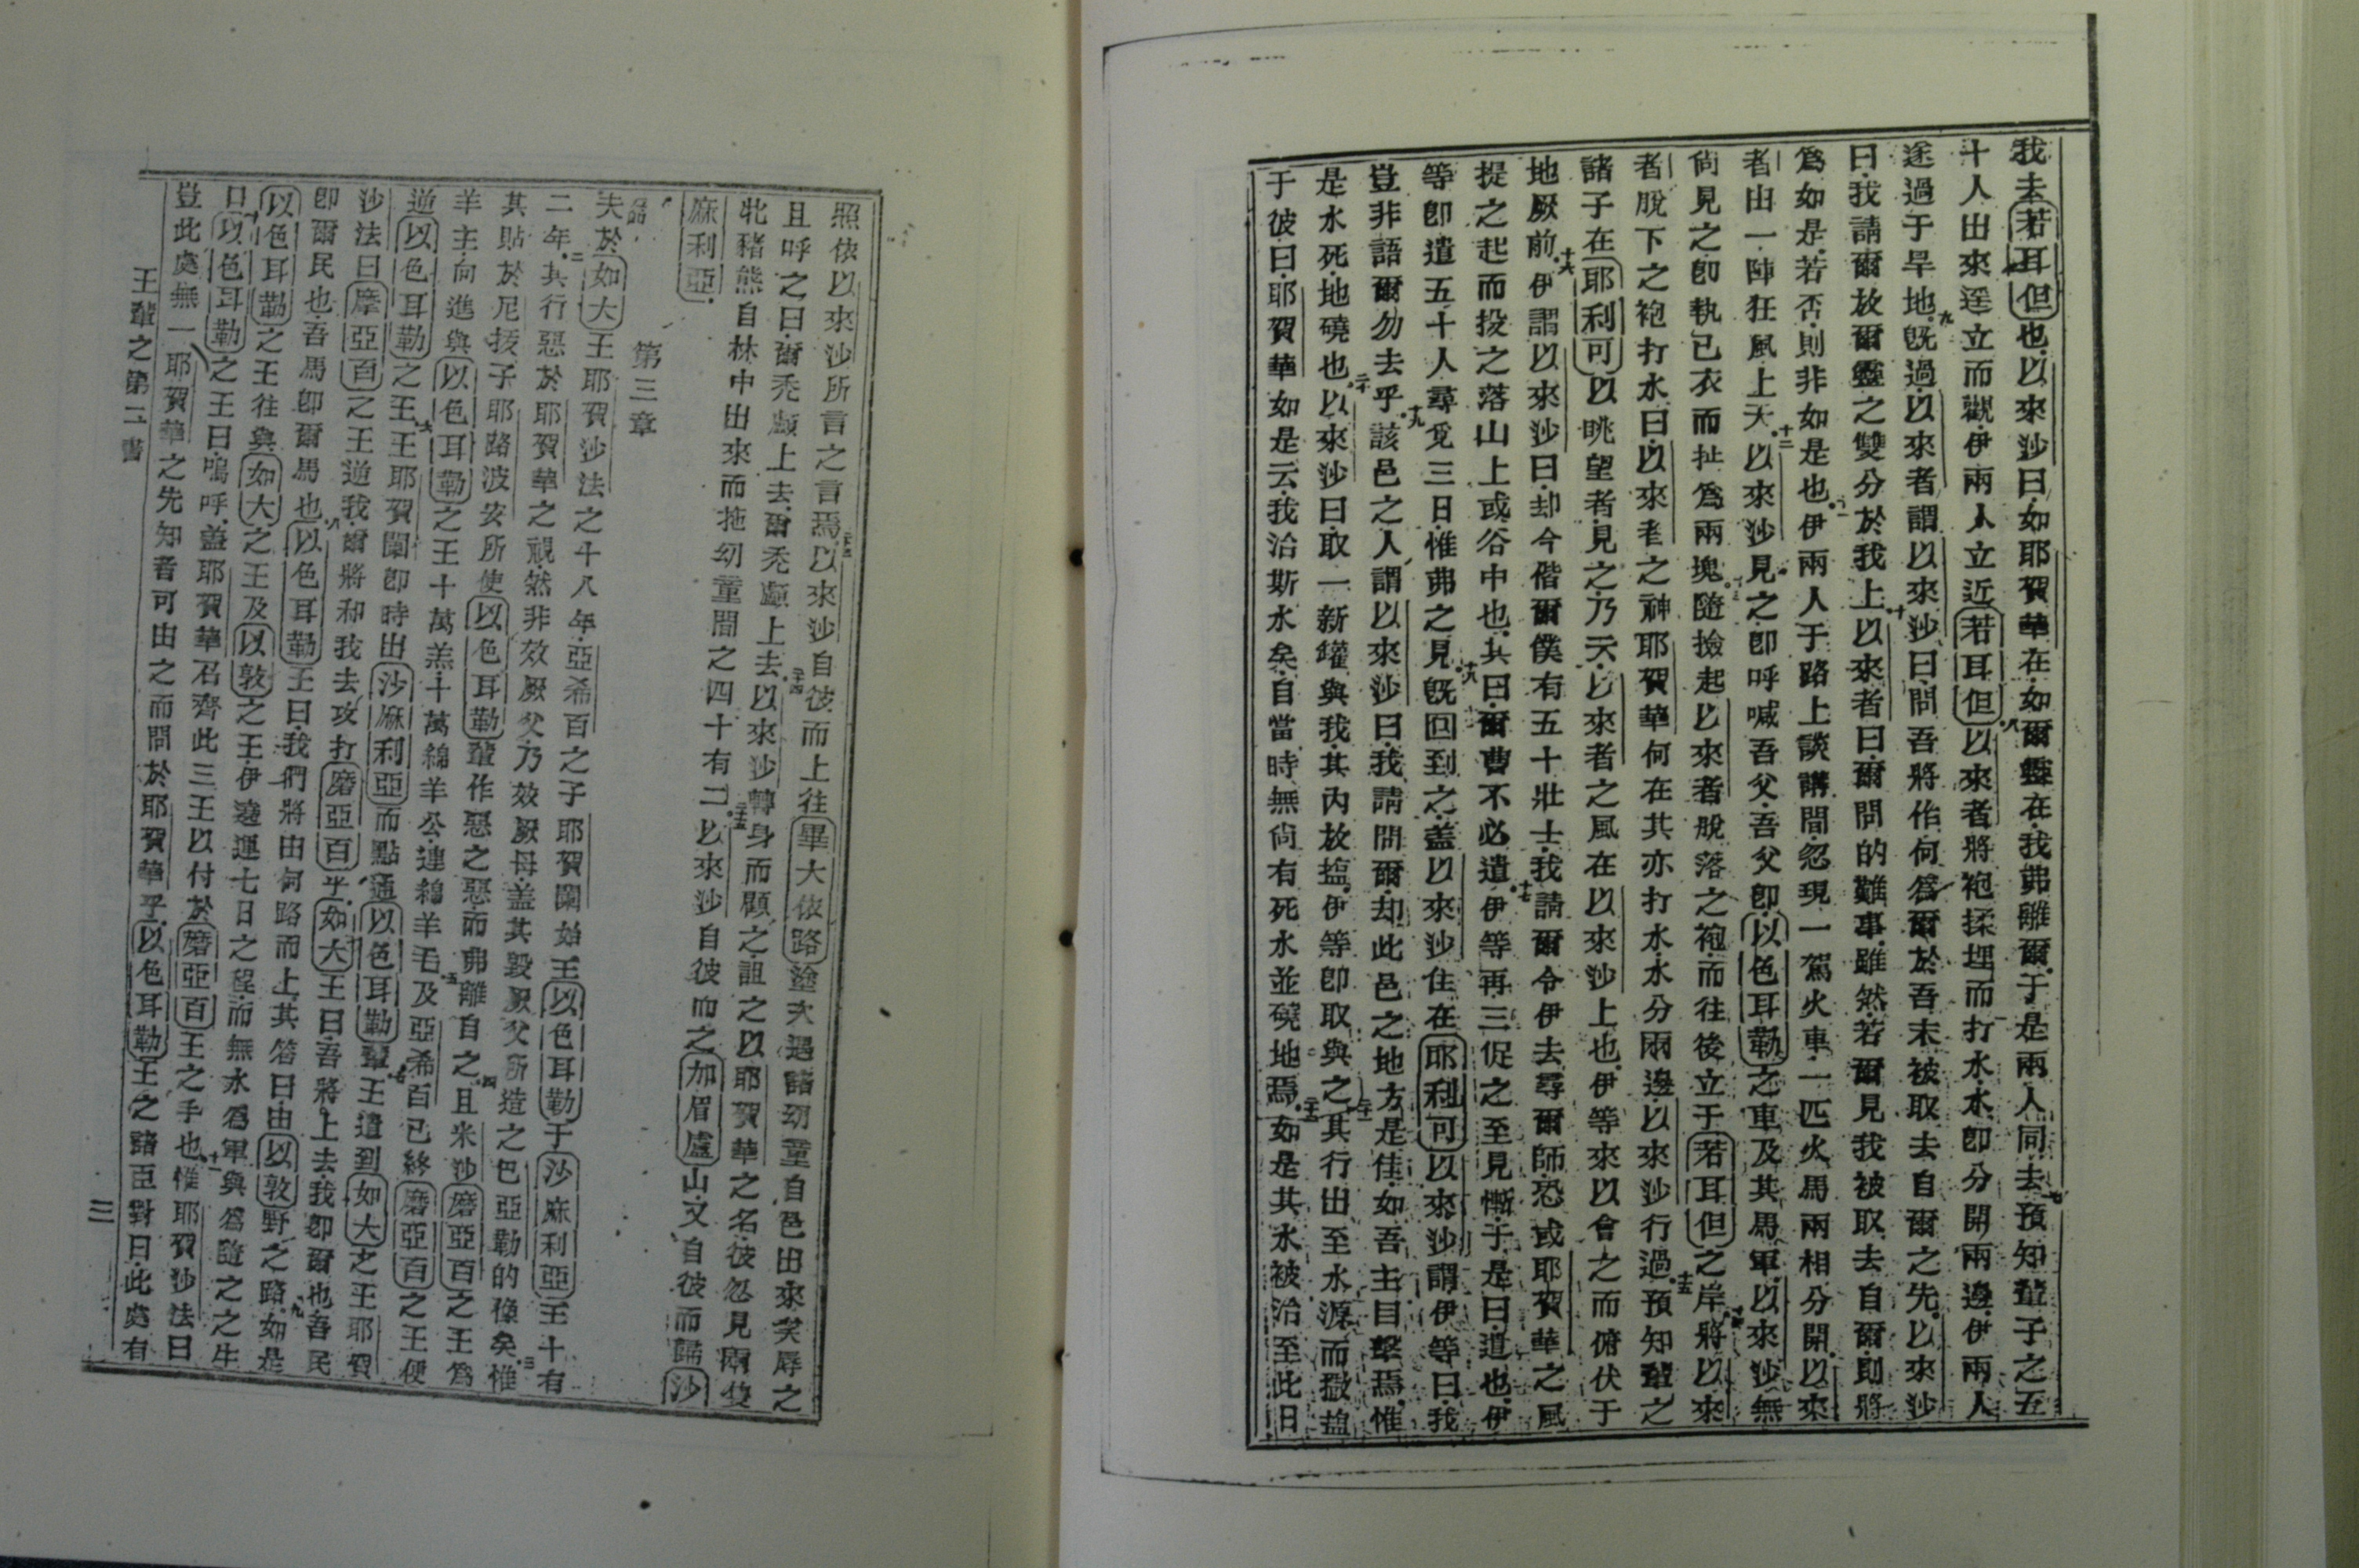 我去若耳但也以來沙曰如耶賀華在如爾靈在我弗離爾于是兩人同去七預知輩子之五
十人出來遥立而觀伊兩人立近若耳但八以來者將袍揉埋而打水水卽分開兩邊伊兩人
遂過于旱地九旣過以來者謂以來沙曰問吾將作何爲爾於吾未被取去自爾之先以來沙
曰我請爾放爾靈之雙分於我上十以來者曰爾問的難事雖然若爾見我被取去自爾則將
爲如是若否則非如是也十一伊兩人于路上談講間忽現一駕火車一匹火馬兩相分開以來
者由一陣狂風上天十二以來沙見之卽呼喊吾父吾父卽以色耳勒之車及其馬軍以來沙無
尙見之卽執己衣而扯爲兩塊十三隨撿起以來者脫落之袍而往後立于若耳但之岸十四將以來
者脫下之袍打水曰以來者之神耶賀華何在其亦打水水分兩邊以來沙行過十五預知輩之
諸子在耶利可以眺望者見之乃云以來者之風在以來沙上也伊等來以會之而俯伏于
地厥前十六伊謂以來沙曰却今偕爾僕有五十壯士我請爾令伊去尋爾師恐或耶賀華之風
提之起而投之落山上或谷中也其曰爾曹不必遣十七伊等再三促之至見慚于是曰遣也伊
等卽遣五十人尋覓三日惟弗之見十八旣回到之蓋以來沙住在耶利可以來沙謂伊等曰我
豈非語爾勿去乎十九該邑之人謂以來沙曰我請問爾却此邑之地方是佳如吾主目擊焉惟
是水死地磽也二十以來沙曰取一新罐與我其內放塩伊等卽取與之二一其行出至水源而擲塩
于彼曰耶賀華如是云我治斯水矣自當時無尙有死水並磽地焉二二如是其水被治至此日
照依以來沙所言之言焉二三以來沙自彼而上往畢大依路塗次遇諸幼童自邑出來笑辱之
且呼之曰爾禿顱上去爾禿顱上去二四以來沙轉身而顧之詛之以耶賀華之名彼忽見兩隻
牝豬熊自林中出來而拖幼童間之四十有二二五以來沙自彼而之加眉盧山又自彼而歸沙
麻利亞
第三章
夫於如大王耶賀沙法之十八年亞希百之子耶賀闌始王以色耳勒于沙麻利亞王十有
二年二其行惡於耶賀華之視然非效厥父乃效厥母蓋其毀厥父所造之巴亞勒的像矣三惟
其貼於尼拔子耶路波安所使以色耳勒輩作惡之惡而弗離自之四且米沙磨亞百之王爲
羊主向進與以色耳勒之王十萬羔十萬綿羊公連綿羊毛五及亞希百已終磨亞百之王便
逆以色耳勒之王六王耶賀闌卽時出沙麻利亞而點通以色耳勒輩七王遣到如大之王耶賀
沙法曰摩亞百之王逆我爾將和我去攻打磨亞百乎如大王曰吾將上去我卽爾也吾民
卽爾民也吾馬卽爾馬也八以色耳勒王曰我們將由何路而上其答曰由以敦野之路九如是
以色耳勒之王往與如大之王及以敦之王伊遶運七日之程而無水爲軍與爲隨之之牛
十曰以色耳勒之王曰嗚呼蓋耶賀華召齊此三王以付於磨亞百王之手也十一惟耶賀沙法曰
豈此處無一耶賀華之先知者可由之而問於耶賀華乎以色耳勒王之諸臣對曰此處有
王輩之第二書
三